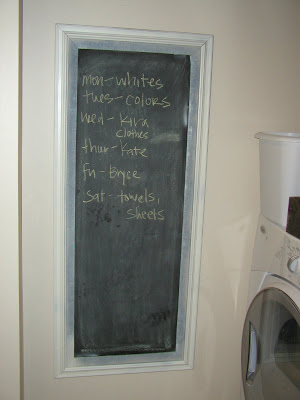 mon-whites
tues-colors
wed-Kira
clothes
thur-Kate
fri-Bryce
sat-towels,
sheets